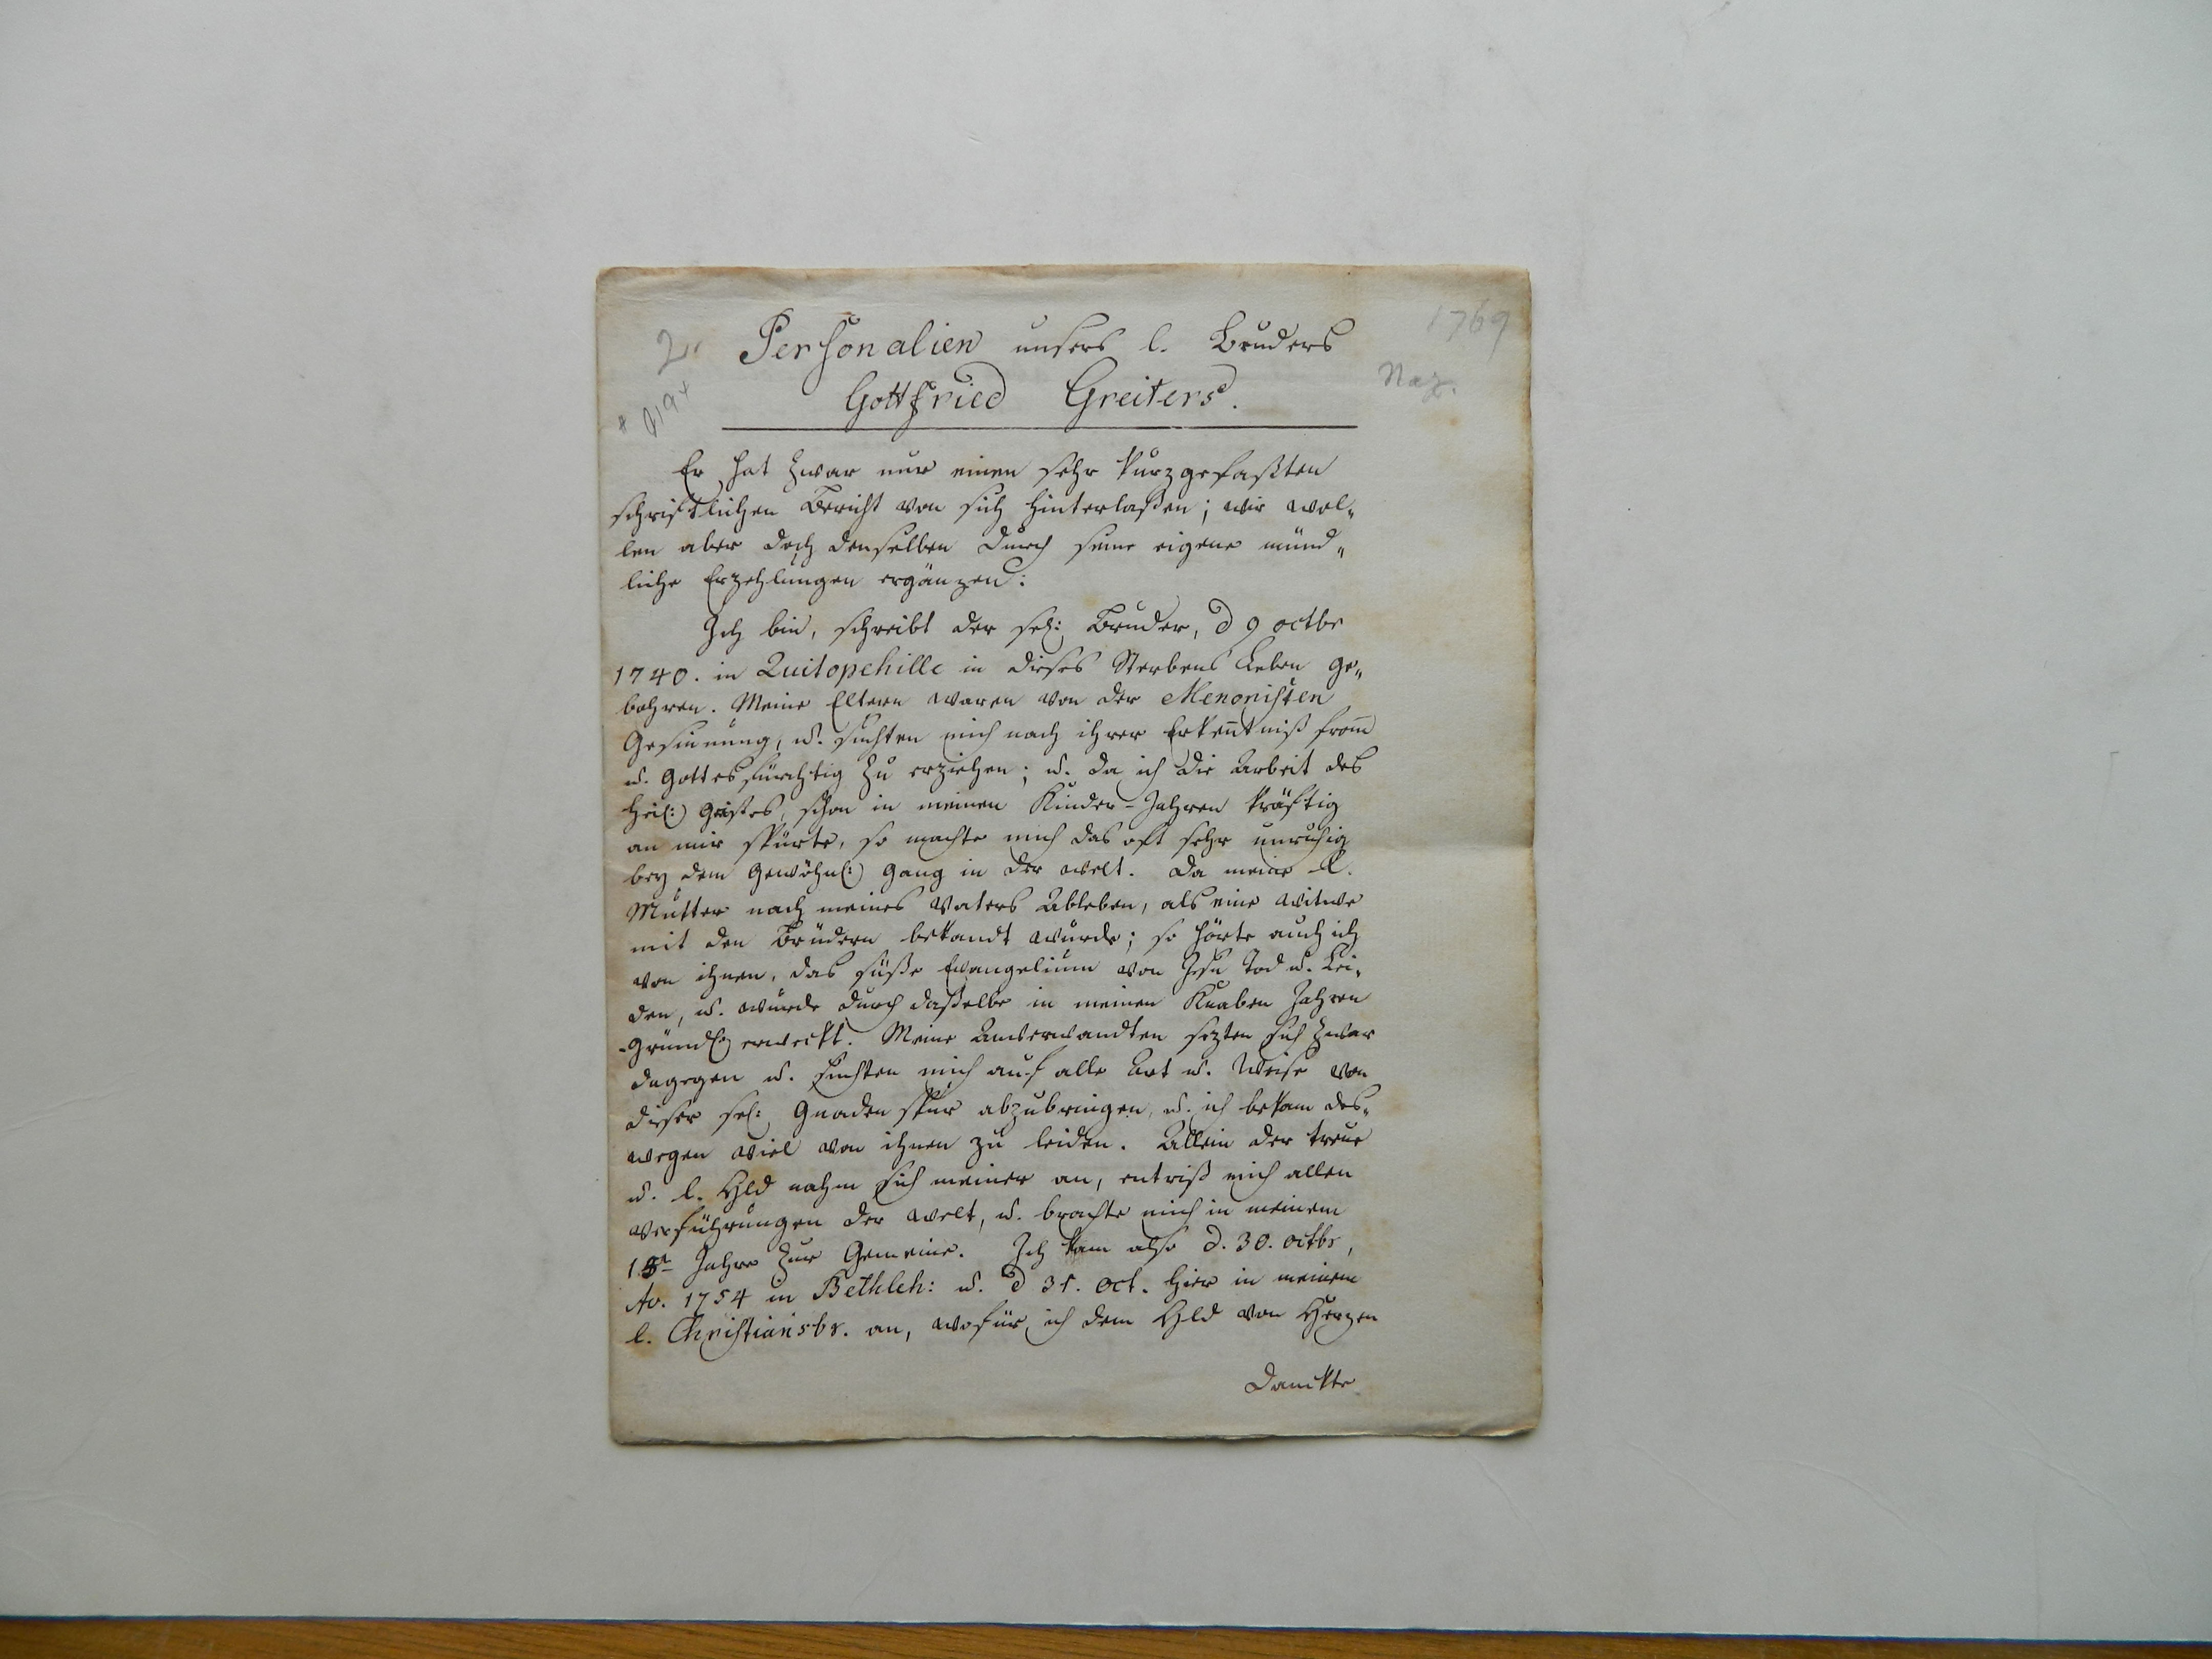 2. Personalien unsers l. Bruders 1769
Gottfried Greiters. Naz.
Er hat zwar nur einen sehr kurzgefaßten
schriftlichen Bericht von sich hinterlaßen; wir wol„
len aber doch denselben durch seine eigene münd„
liche Erzehlungen ergänzen:
Ich bin, schreibt der sel: Bruder, d 9 octbr
1740. in Quitopehille in dieses Sterbens Leben ge„
bohren. Meine Eltern waren von der Menonisten
Gesinnung, u. suchten mich nach ihrer Erkeñtniß from̃
u. Gottesfürchtig zu erziehen; u. da ich die Arbeit des
Heil: Geistes, schon in meinen Kinder-Jahren kräftig
an mir spürte, so machte mich das oft sehr unruhig
bey dem Gewöhnl: Gang in der Welt. Da meine l.
Mutter nach meines Vaters Ableben, als eine Witwe
mit den Brüdern bekandt wurde; so hörte auch ich
von ihnen, das süße Evangelium von Jesu Tod u. Lei„
den, u. wurde durch daßelbe in meinen Knaben Jahren
gründl: erweckt. Meine Anverwandten sezten sich zwar
dagegen u. suchten mich auf alle Art u. Weise von
dieser sel: Gnaden spur abzubringen, u. ich bekam des„
wegen viel von ihnen zu leiden. Allein der treue
u. l. Hld nahm sich meiner an, entriß mich allen
Verführungen der Welt, u. brachte mich in meinem
Jahre zur Gemeine. Ich kam also d. 30. octbr,
Ao. 1754 in Bethleh: u. d 31. Oct. hier in meinem
l. Christiansbr. an, wofür ich dem Hld von Herzen
danckte